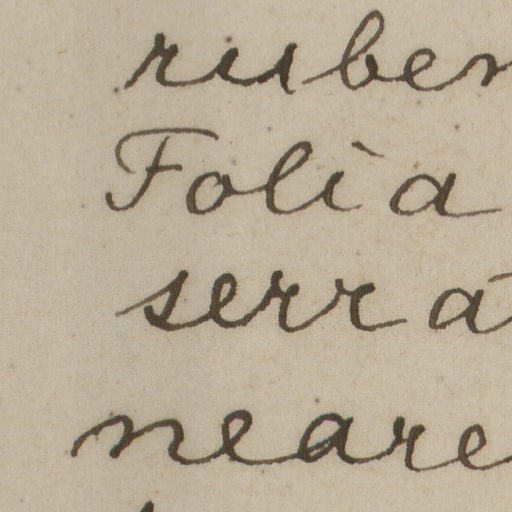 ruben
Folia
serra
neare